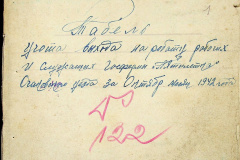 1
Табель
учота выхода на работу рабочих
и служащих Госфермы "Пятилетка"
цеха за Октябрь месяц 1942 года
№
122